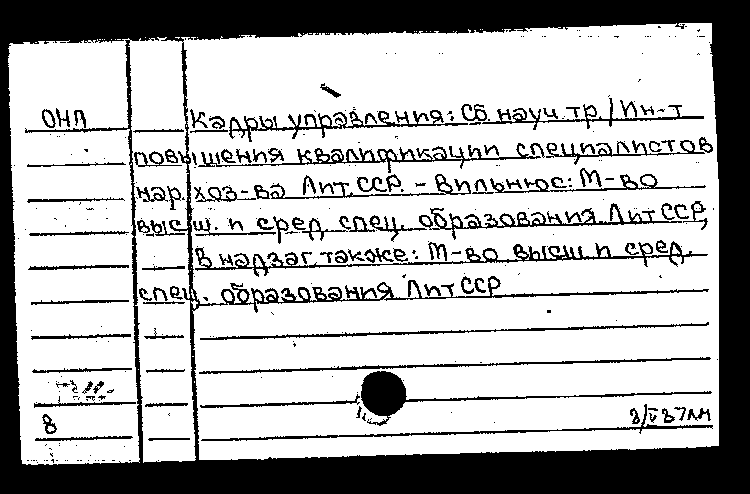 ОНЛ Кадры управления: Сб. науч. тр. / Ин-т
повышения квалификации специалистов
нар. хоз-ва Лит. ССР. - Вильнюс: М-во
высш. и сред. спец. образования Лит ССР,
В надзаг. также: М-во высш. и сред.
спец. образования Лит ССР
8